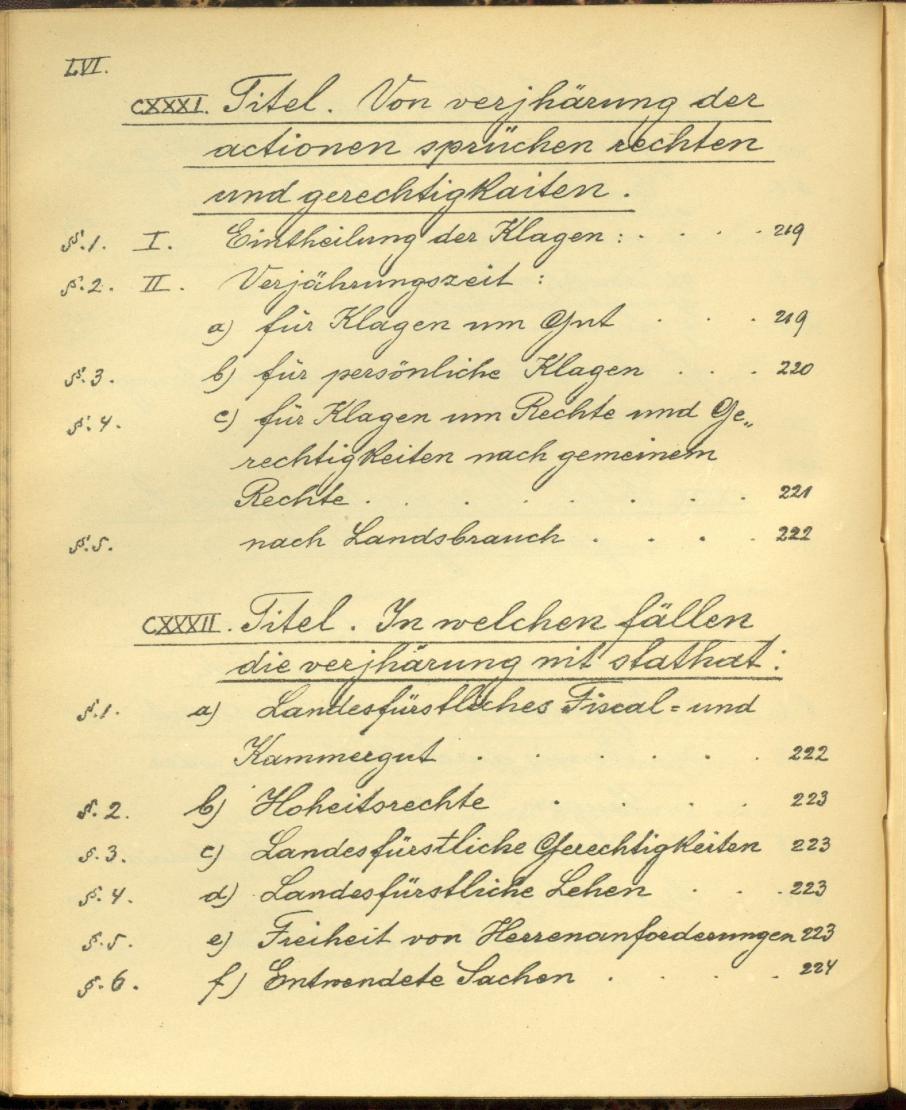 LVI.
CXXXI. Titel. Von verjhärung der
actionen sprüchen rechten
und gerechtigkaiten.
§.1. I. Eintheilung der Klagen: . . . . 219
§.2. II. Verjährungszeit :
a) für Klagen um Gut . . . 219
§.3. b) für persönliche Klagen . . . 220
§.4. c) für Klagen um Rechte und Ge„
rechtigkeiten nach gemeinem
Rechte . . . . . . . . 221
§.5. nach Landsbrauch . . . . 222
CXXXII. Titel. In welchen fällen
die verjhärung nit stathat :
§.1. a) Landesfürstliches Fiscal = und
Kammergut . . . . . . 222
§.2. b) Hoheitsrechte . . . . 223
§.3. c) Landesfürstliche Gerechtigkeiten 223
§.4. d) Landesfürstliche Lehen . . . 223
§.5. e) Freiheit von Herrenanforderungen 223
§.6. f) Entwendete Sachen . . . . 224